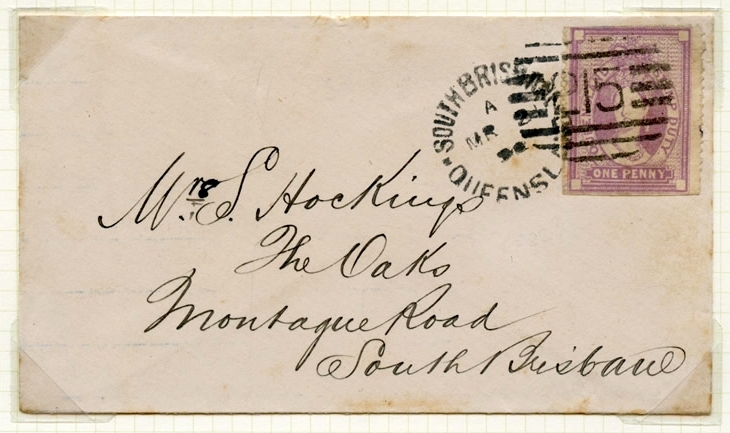 SOUTH BRIS
A
MR
QUEENSL
15
DUTY
ONE PENNY
Mrs. S. Hockings
The Oaks
Montague Road
South Brisbane